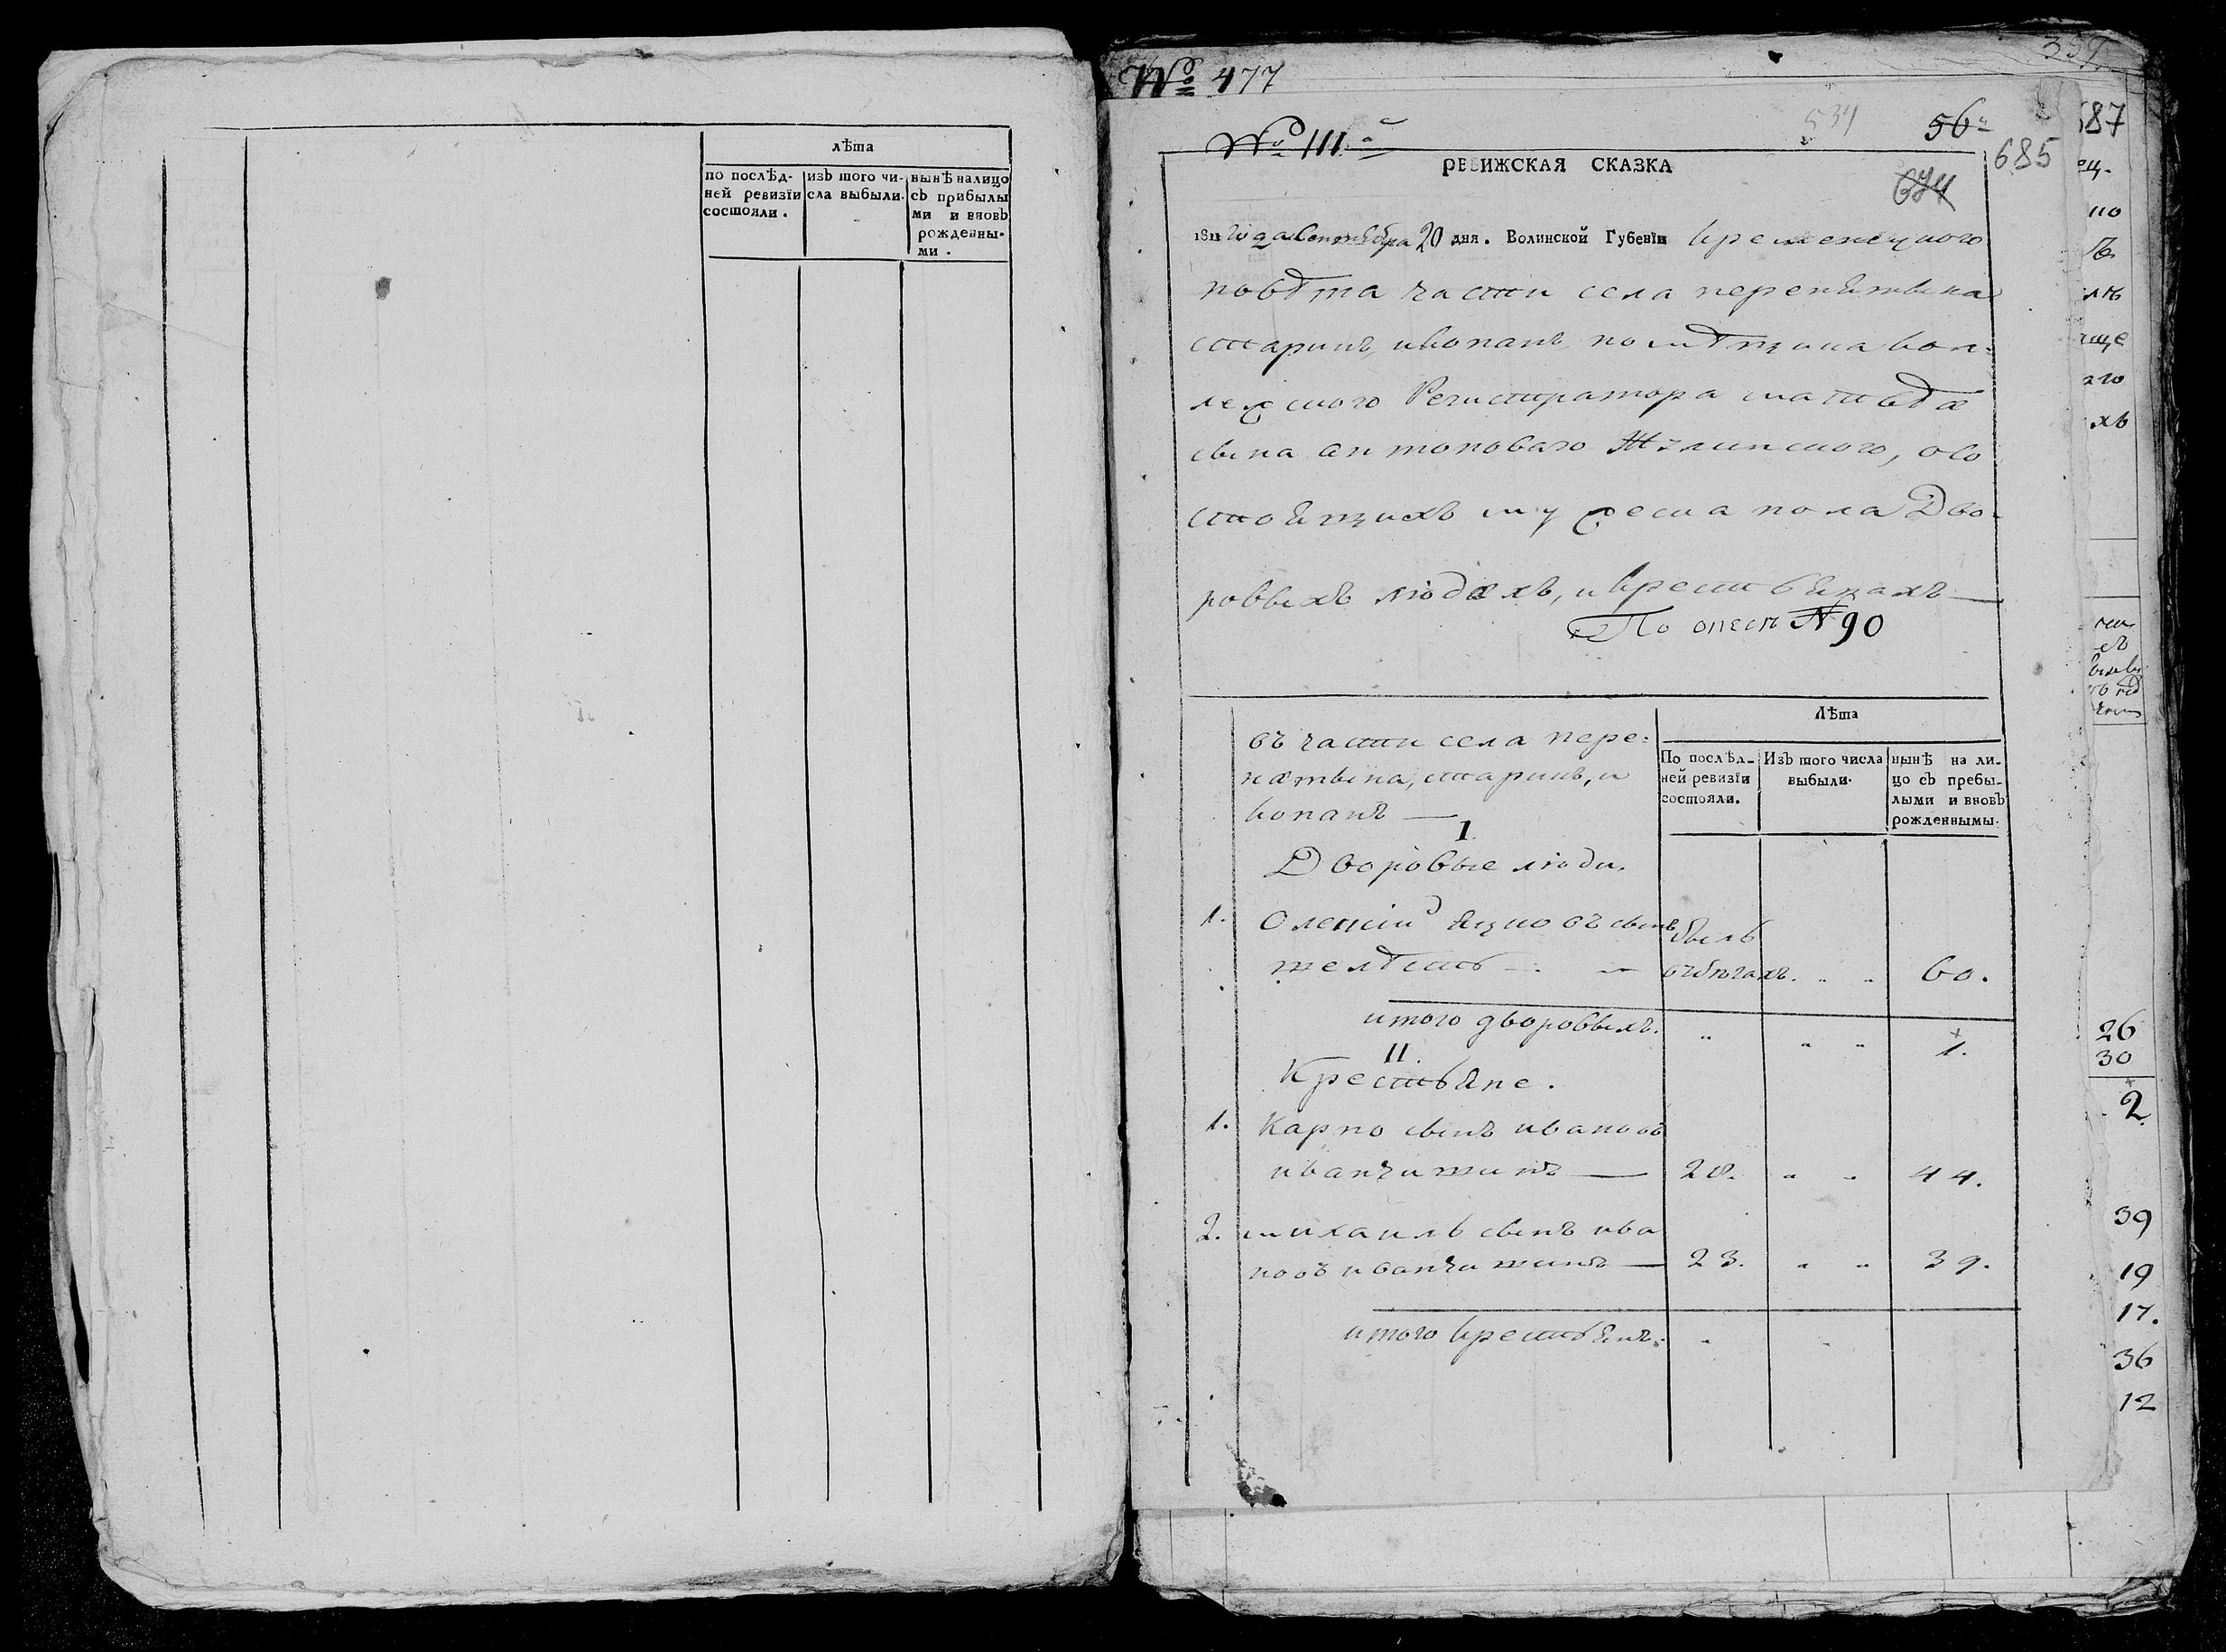 лѣта
по послѣд-
ней ревизїи
состояли.
изъ того чи-
сла выбыли.
нынѣ налицо
съ прибылы
ми и вновь
рожденны-
ми.
№ 477
№ 111
534
56
687
685
674
РЕВИЖСКАЯ СКАЗКА
1811 года Сентября 20 дня. Волинской Губенїи Кременецкого
повѣта части села
старикъ, икопань помѣщика кол-
лежского Регистратора матвѣя
сына антонового, осо
стоящихъ мужеска пола Дво-
ровыхъ людяхъ, и крестьянахъ
По описи №90
въ части села пере-
нятына, старикъ, и
копань
I
Дворовые люди.
Лѣта
По послѣд-
ней ревизїи
состояли.
Изъ того числа
выбыли.
нынѣ на ли-
цо съ пребы-
лыми и вновь
рожденнымы.
1. Олексій Яцковъ сынъ былъ
вбѣгахъ. " " 60.
итого дворовыхъ. " " " 1.
II.
Крестьяне.
1. Карпо сынъ ивановъ
28. " " 44.
2. михаилъ сынъ ива
новъ 23. " " 39.
итого крестьянъ: " "
26
30
2
39
19
17.
36
12